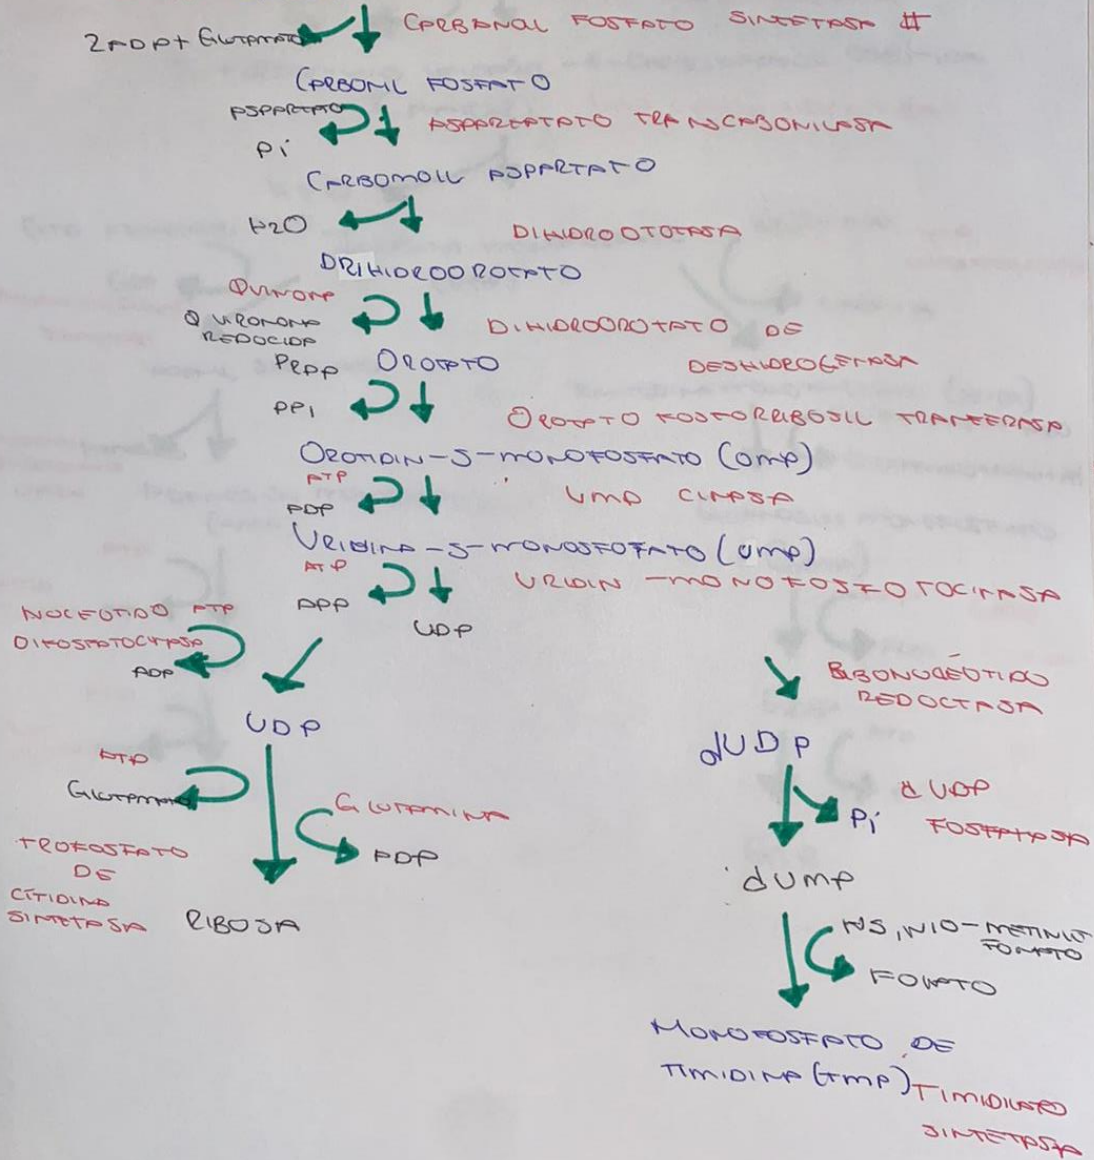 2ADP+ GLUTAMATO
CARBANOIL FOSFATO SINTETASA II
CARBONIL FOSFATO
ASPARTATO
ASPARTATATO TRANCABONILASA
Pi
CARBOMOIL ASPARTATO
H2O
DIHIDROOTOTASA
DRIHIDROOROTATO
QUINONA
QUIRONONA
REDOCIDA
DIHIDROOROTATO DE
DESHIDROGENASA
PRPP
OROTATO
PPI
OROTATO FOSFORRIBOSIL TRANFERASA
OROTIDIN-5-MONOFOSFATO (OMP)
ATP
ADP
UMP CINASA
URIDINA-5-MONOSFOFATO (UMP)
ATP
URIDIN -MONOFOSFOTOCINASA
APP
UDP
NOCEOTIDO ATP
DIFOSFATOCINASA
ADP
RIBONOCÉOTIDO
REDOCTASA
UDP
dUDP
ATP
GLUTAMATO
GLUTAMINA
ADP
dUDP
FOSFATASA
Pi
TROFOSFATO
DE
CÍTIDINA
SINTETASA
RIBOSA
dUMP
N5,N10-METINLO
FOLATO
MONOFOSFATO DE
TIMIDINA (TMP)
TIMIDILATO
SINTETASA